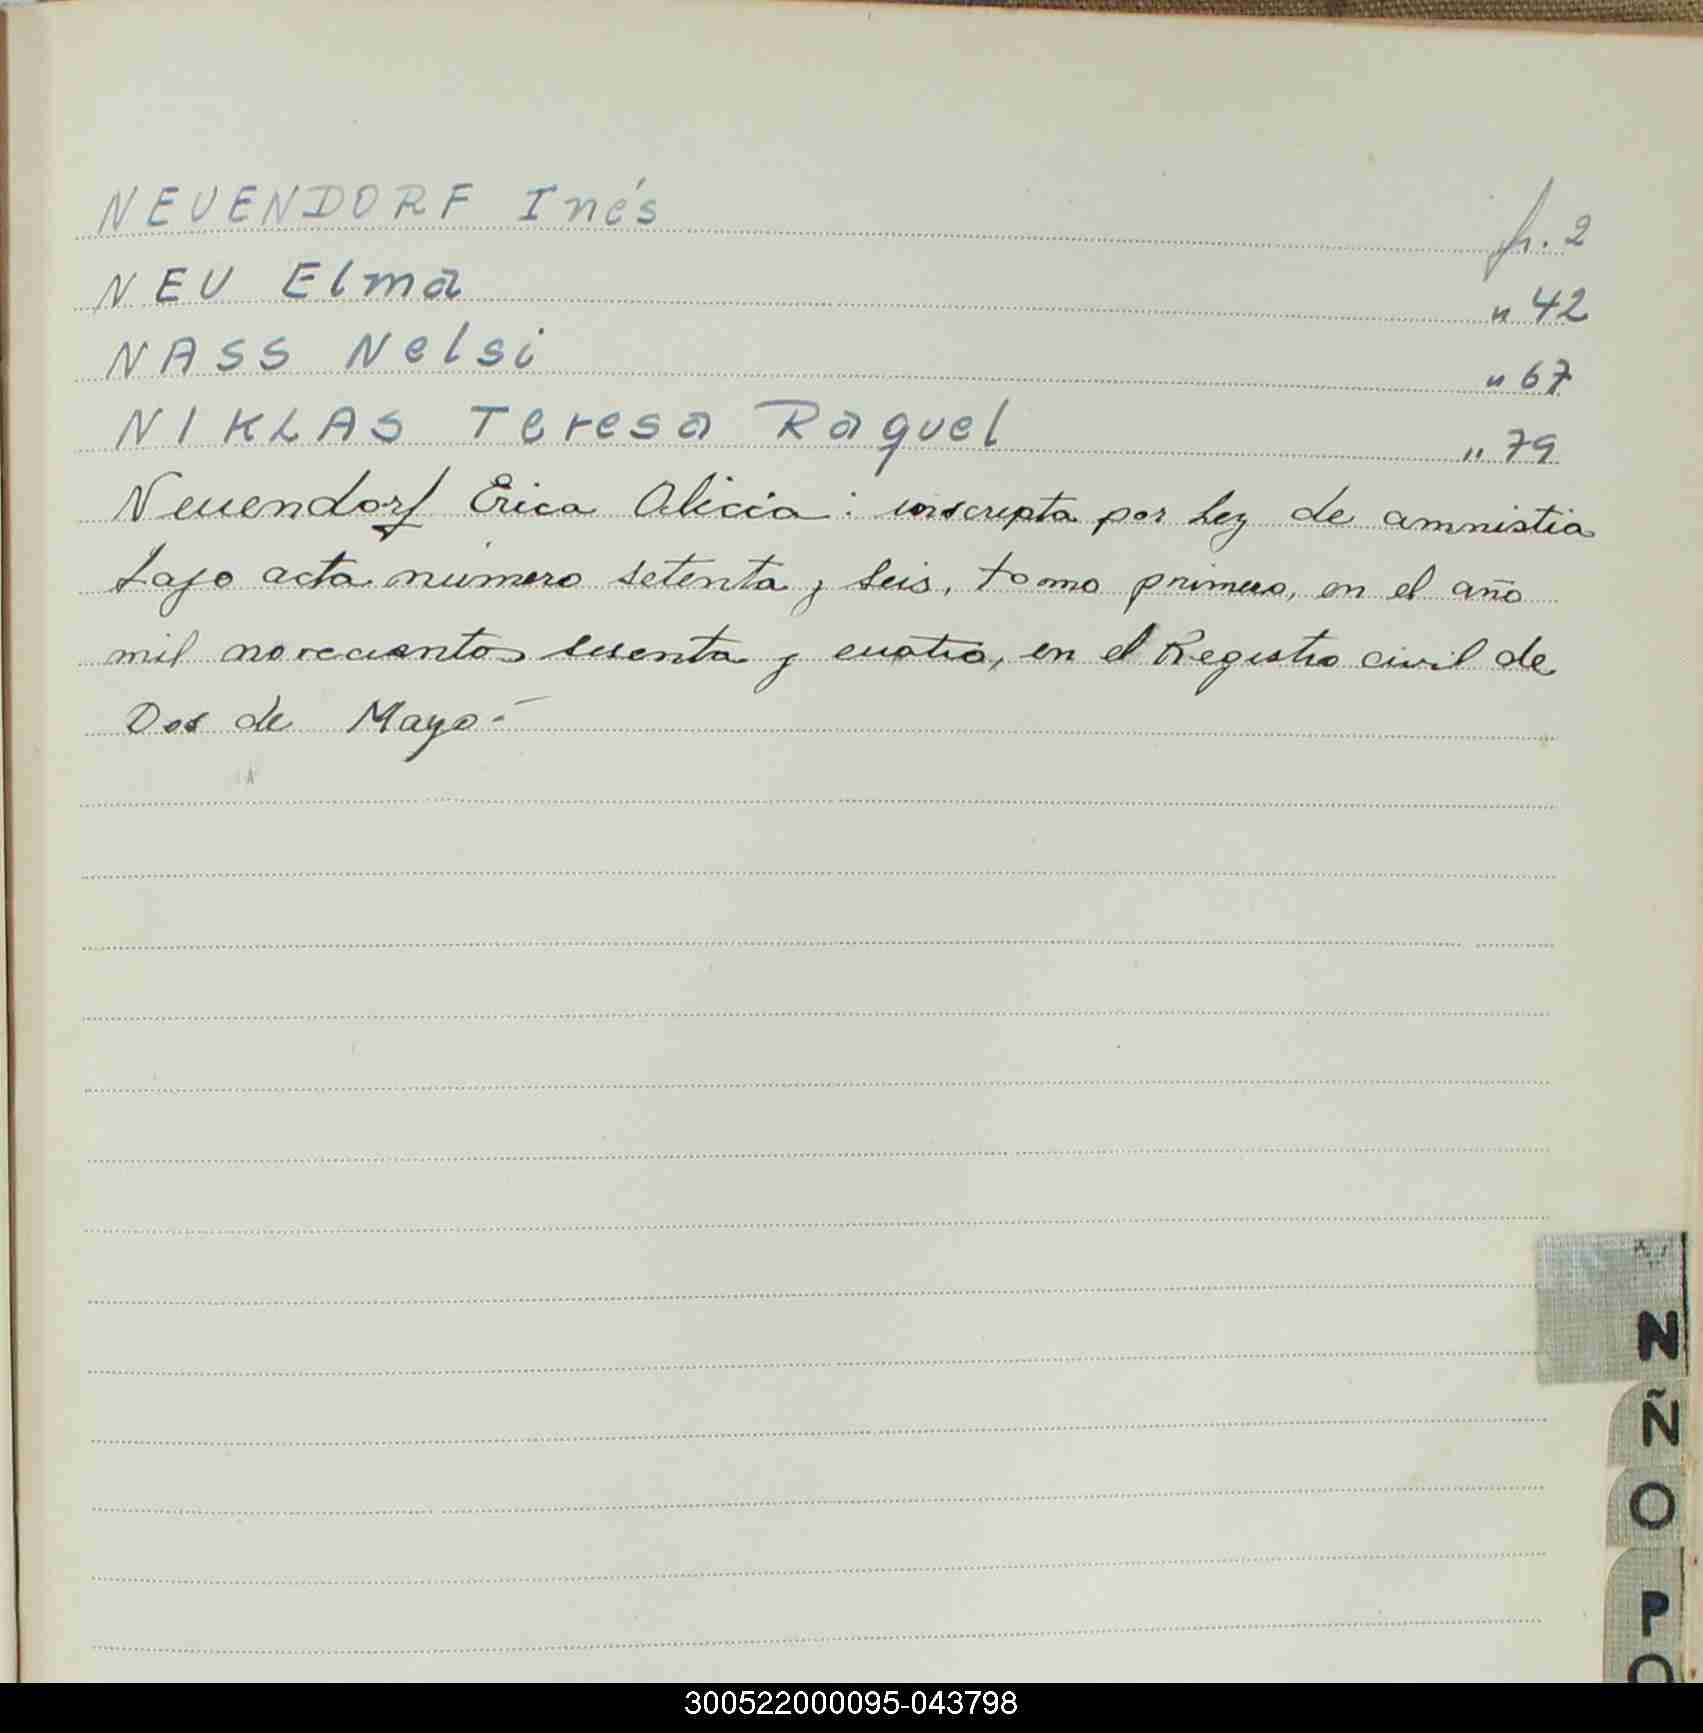 NEUENDORF Inés fr. 2
NEU Elma " 42
NASS Nelsi " 67
NIKLAS Teresa Raquel " 79
Neuendorf Erica Alicia: inscripta por ley de amnistia
bajo acta número setenta y seis, tomo primero, en el año
mil novecientos sesenta y cuatro, en el Registro civil de
Dos de Mayo.-
N
Ñ
O
P
Q
300522000095-043798